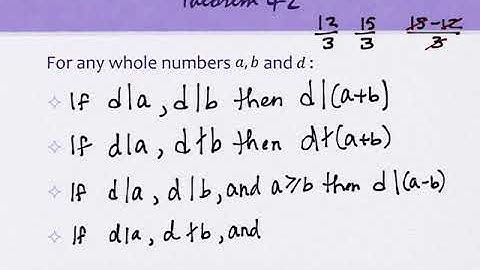 Theorem 4-2
12/3 15/3 18-12/3
For any whole numbers a, b and d :
If d|a , d|b then d|(a+b)
If d|a , d∤b then d∤(a+b)
If d|a , d|b, and a≥b then d|(a-b)
If d|a , d∤b, and